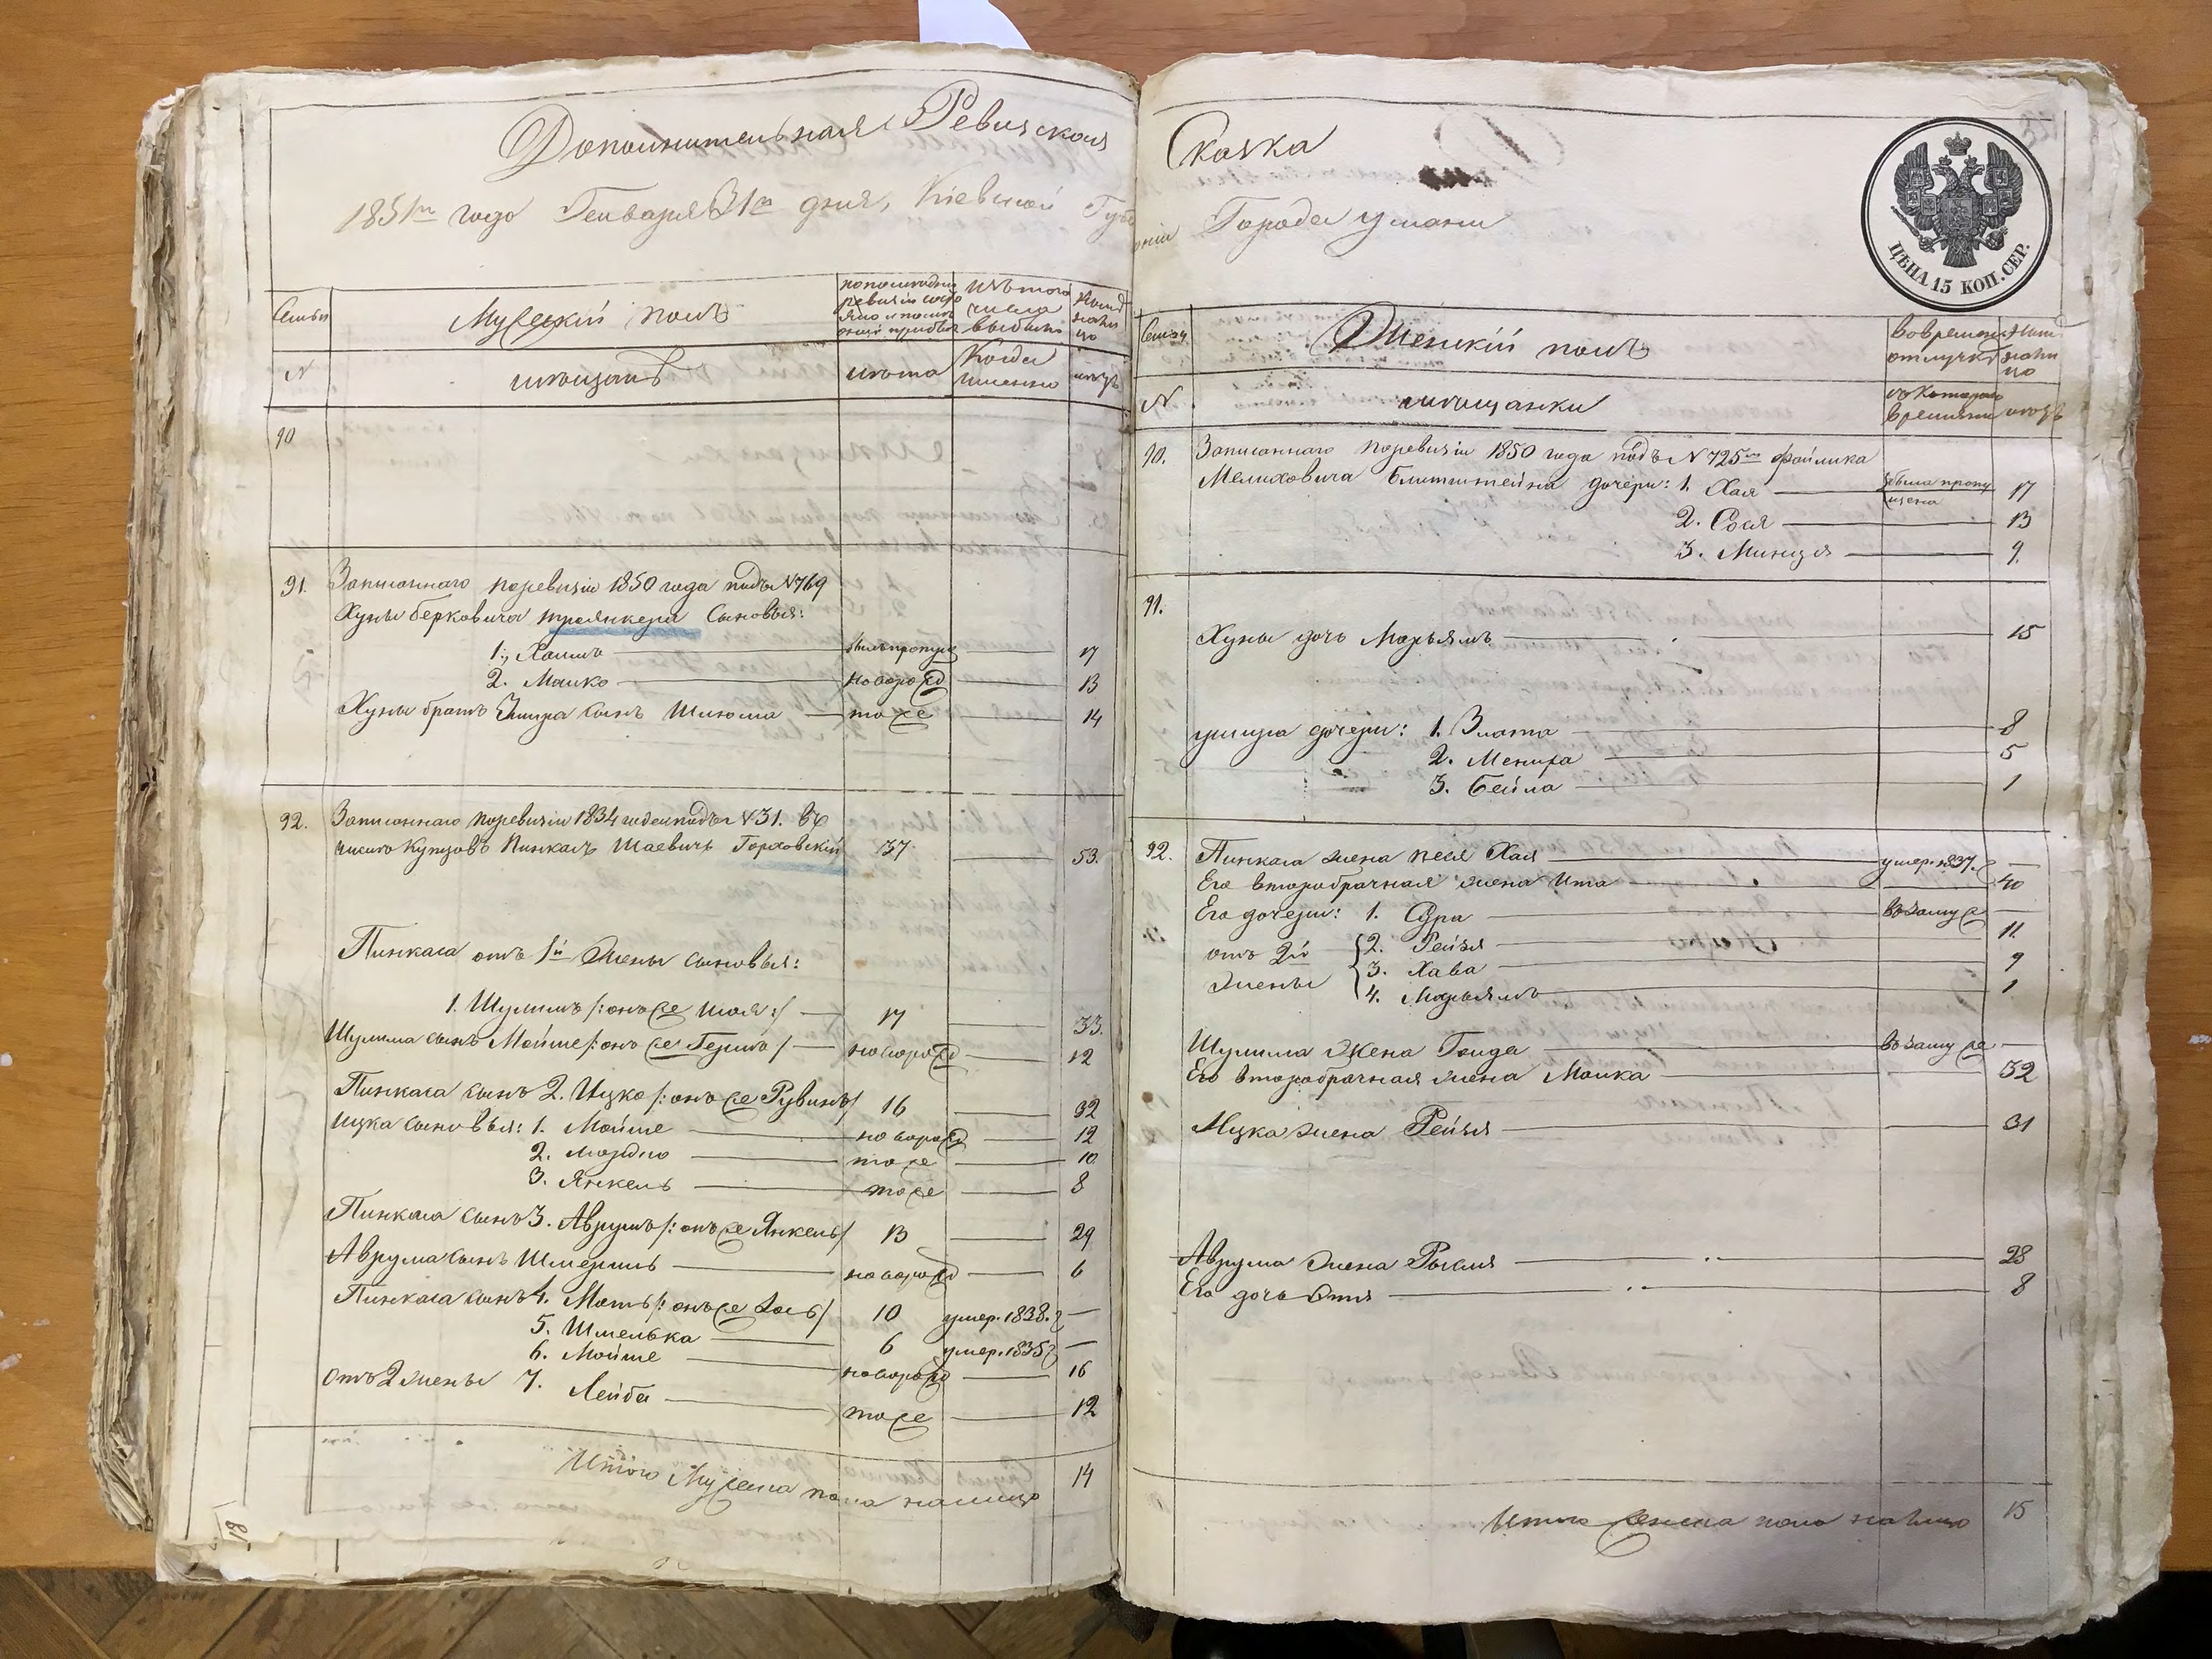 Дополнительная Ревизская
1851го года Генваря 31го дня, Кіевской Губ
Семьи
Мужескій полъ
по последней ревизіи состояло и после оной прибыло
изъ того числа выбыло
Ныне на лицо
N
мѣщанѣ
лѣта
Когда именно
лѣтъ
90
91. Записаннаго по ревизіи 1850 года подъ N 769
Хуны Берковича Траянкера сыновья:
1., Хаимъ былъ пропущ 17
2. Манко новорожд 13
Хуны братъ Умира сынъ Шлюма тоже 14
92. Записаннаго по ревизіи 1834 года подъ N 31. въ
числе купцовъ Пинкасъ Шаевичъ Горховскій 37 53.
Пинкаса отъ 1й жены сыновья:
1. Шулимъ /: онъ же Шая :/ 17 33.
Шулима сынъ Мойше /: онъ же Гершъ / новорожд 12
Пинкаса сынъ 2. Ицко /: онъ же Рувинъ / 16 32
Ицка сыновья: 1. Мойше новорожд 12
2. Мордко тоже 10
3. Янкель тоже 8
Пинкаса сынъ 3. Аврумъ /: онъ же Янкель / 13 29
Аврума сынъ Шмериль новорожд 6
Пинкаса сынъ 4. Моть /: онъ же Зось / 10 умер. 1838.
5. Шмелька 6 умер. 1835
6. Мойше новорожд 16
отъ 2 жены 7. Лейба тоже 12
Итого Мужеска пола налицо 14
18
Сказка
ніи Города Умани
ЦѢНА 15 КОП. СЕР.
Семьи
Женскій полъ
во временной отлучке
Ныне на лицо
N
мѣщанки
съ котораго времяни
лѣтъ
90. Записаннаго по ревизіи 1850 года подъ N 725мъ Файлика
Мелиховича Блитштейна дочери: 1. Хая была пропущена 17
2. Сося 13
3. Минця 9
91.
Хуны дочь Марьямъ 15
Умира дочери: 1. Злата 8
2. Менира 5
3. Бейла 1
92. Пинкаса жена Песя Хая умер. 1837.
Его второбрачная жена Ита 40
Его дочери: 1. Сура въ замуж
отъ 2й жены
2. Рейзя 11
3. Хава 9
4. Марьямъ 1
Шулима жена Гитда въ замуже
Его второбрачная жена Малка 32
Ицка жена Рейзя 31
Аврума жена Рыкля 28
Его дочь Этя 8
Итого женска пола налицо 15